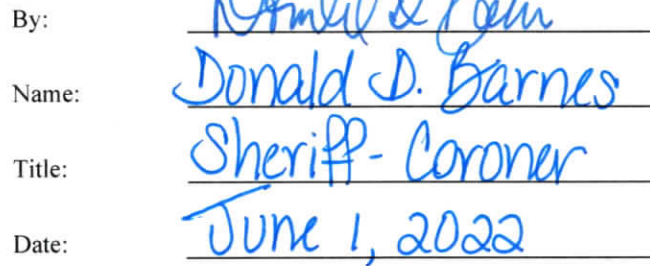 By:
Name: Donald D. Barnes
Title: Sheriff-Coroner
Date: June 1, 2022